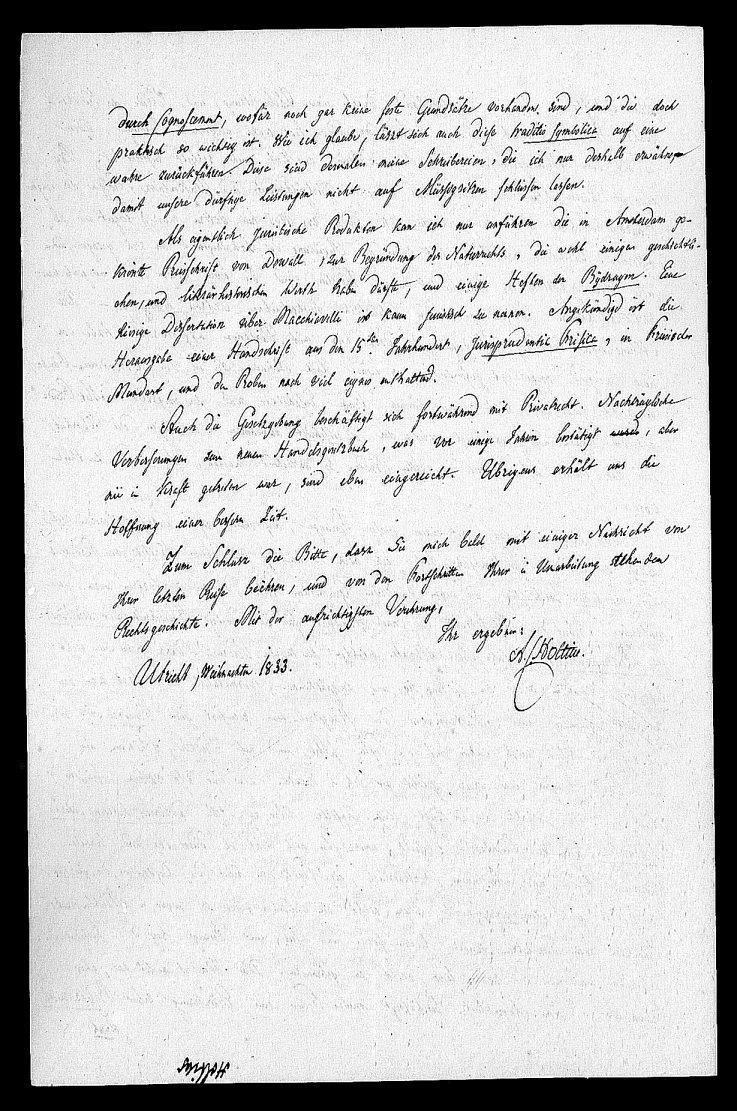 durch Connossement, wofür noch gar keine feste Grundsätze vorhanden sind, und die doch
praktisch so wichtig ist. Wie ich glaube, lässt sich auch diese traditio symbolica auf eine
wahre zurückführen. Diese sind dermalen meine Schreibereien, die ich nur deshalb erwähne,
damit unsere dürftige Leistungen nicht auf Müssigsitzen schliessen lassen.
Als eigentlich juristische Produkten kan ich nur anführen die in Amsterdam ge-
krönte Preisschrift von Dewall, zur Begründung des Naturrechts, die wohl einigen geschichtli-
chen, und literärhistorischen Werth haben dürfte, und einige Heften der Bydragen. Eine
hiesige Dissertation über Macchiavelli ist kaum juristisch zu nennen. Angekündigd ist die
Herausgabe einer Handschrift aus dem 15ten Jahrhundert, Jurisprudentia Frisica, in friesischer
Mundart, und den Proben nach viel eignes enthaltend.
Auch die Gesetzgebung beschäftigt sich fortwährend mit Privatrecht. Nachträgliche
Verbesserungen zum neuen Handelsgesetzbuch, was vor einige Jahren bestätigt wurde, aber
nie in Kraft getreten war, sind eben eingereicht. Übrigens erhält uns die
Hoffnung einer bessern Zeit.
Zum Schlusz die Bitte, dasz Sie mich bald mit einiger Nachricht von
Ihrer letzten Reise beehren, und von den Fortschritten Ihrer in Umarbeitung stehenden
Rechtsgeschichte. Mit der aufrichtigsten Verehrung,
Ihr ergebener
Utrecht, Weihnachten 1833.
Holtius.
Holtius